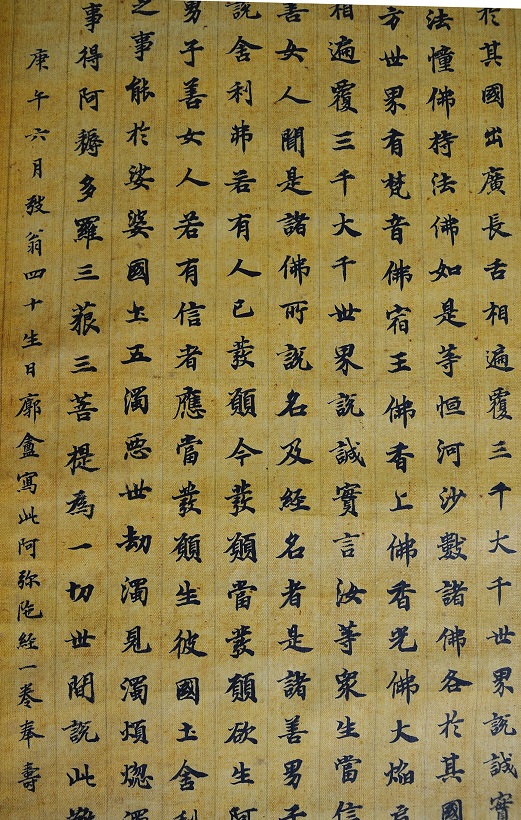 於其國出廣長舌相遍覆三千大千世界說誠實
法幢佛持法佛如是等恒河沙數諸佛各於其國
方世界有梵音佛宿王佛香上佛香光佛大焰肩
相遍覆三千大千世界說誠實言汝等眾生當信
善女人聞是諸佛所說名及經名者是諸善男子
說舍利弗若有人已發願今發願當發願欲生阿
男子善女人若有信者應當發願生彼國土舍利
之事能於娑婆國土五濁惡世劫濁見濁煩惱濁
事得阿耨多羅三藐三菩提為一切世間說此難
庚午六月弢翁四十生日廓盦寫此阿弥陀經一卷奉壽